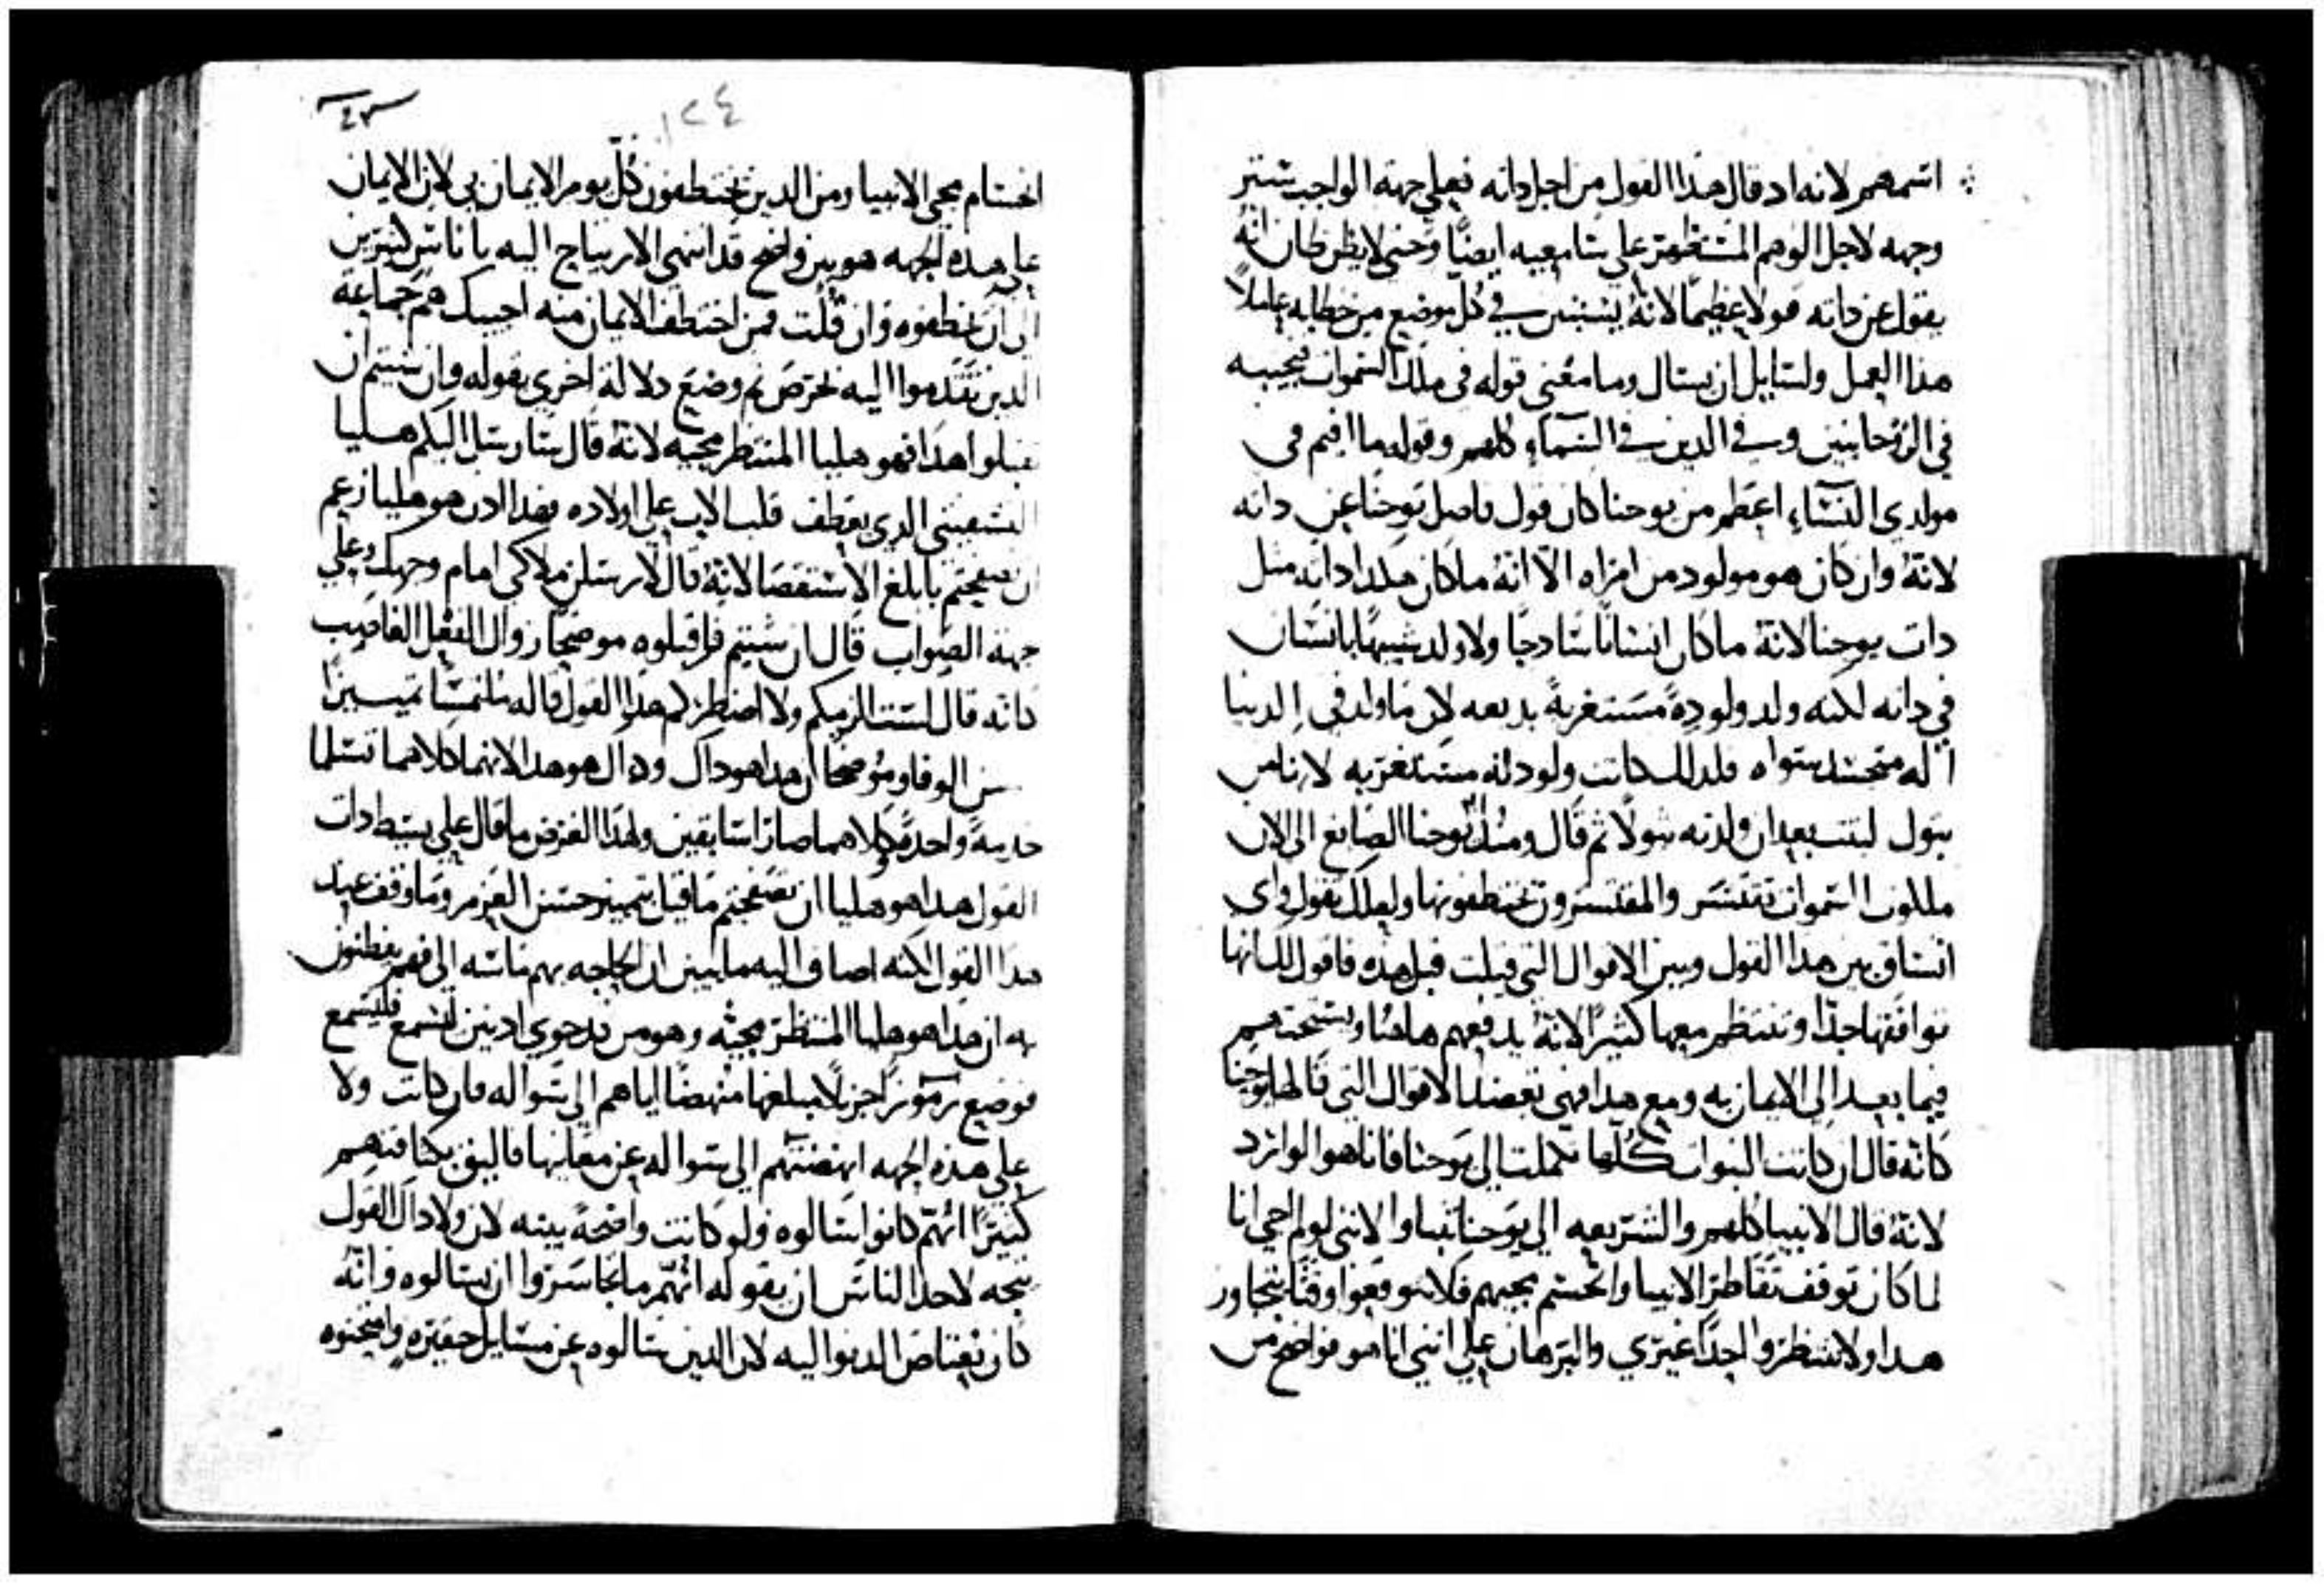 اسمهم لانه اد قال هدا القول من اجل داته فعلي جهة الواجب ستر
وجهه لاجل الوهم المستظهر علي سامعيه ايضًا وحتي لا يظن ظان انهُ
يقول عن داته قولا عظيمًا لانهُ يستبين في كل موضع من خطابه عاملاً
هدا العمل ولسايل ان يسال وما معني قوله في ملك السموات فجيبه
في الروحانيين وفي الدين في السماء كلهم وقوله ما اقيم في
مولدي النساء اعظم من يوحنا كان قول فاصل يوحنا عن داته
لانهُ وان كان هو مولود من امراه الا انهُ ما كان ميلاد داته مثل
دات يوحنا لانهُ ما كان انسانًا سادجًا ولا ولد شبيهًا بانسان
في داته لكنه ولد ولودةً مستغربةً بديعه لان ما ولد في الدنيا
اله متجسد سواه فلدلك كانت ولودته مستغربه لان
بتول لبثت بعد ان ولدته بتولا ثم قال ومند يوحنا الصابغ الي الان
ملكوت السموات تقتسر والمقتسرون يختطفونها ولعلك تقول واي
اتساق بين هدا القول وبين الاقوال التي قيلت قبل هده فاقول لك انها
توافقها جدًا وتنتظم معها كثيرًا لانهُ يدفعهم هاهنا ويستحثهم
فيما بعد الي الايمان به ومع هدا فهي تعضد الاقوال التي قالها يوحنا
كانه قال ان كانت النبوات كلها كملت الي يوحنا فانا هو الوارد
لانهُ قال الانبيا كلهم والشريعه الي يوحنا تنباوا لانني لو لم اجي انا
لما كان توقف تقاطر الانبيا وانحسم مجيهم فلا تتوقعوا وقتًا يتجاوز
هدا ولا تنتظروا احدًا غيري والبرهان علي انني انا هو فواضح من
٤٣
١٢٤
انحسام مجي الانبيا ومن الدين يختطفون كل يوم الايمان بي لان الايمان
علي هده الجهه هو بين واضح قد انتهي الارتياح اليه باناس كثيرين
الي ان خطفوه وان قلت فمن اختطف الايمان منه اجيبك هم جماعة
الدين تقدموا اليه بحرص ثم وضع دلالة اخري بقوله وان شيتم ان
تقبلوا هدا فهو هليا المنتظر مجيه لانهُ قال سارسل اليكم هليا
التسبيتي الدي يعطف قلب الاب علي اولاده فهدا ادن هو هليا زعم
ان تصفحتم بابلغ الاستقصا لانهُ قال لارسلن ملاكي امام وجهك وعلي
جهة الصواب قال ان شيتم فاقبلوه موضحًا زوال الفعل الغاصب
كانه قال لست الزمكم ولا اضطركم هدا القول قاله ملتمسًا تمييزًا
الوفا وموضحًا ان هدا هو داك وداك هو هدا لانهما كلاهما تسلما
خدمةً واحدة وكلاهما صارا سابقين ولهدا الغرض ما قال علي بسيط دات
القول هدا هو هليا ان تصفحتم ما قيل بتمييز حسن العزم وما وقف عند
هدا القول لكنه اضاف اليه ما يبين ان الحاجه بهم ماسه الي فهم يفطنون
به ان هدا هو هليا المنتظر مجيه وهو من قد حوي ادنين لتسمع فليسمع
فوضع رموزًا جزيلاً مبلغها منهضًا اياهم الي سواله فان كانت ولا
علي هده الجهه انهضتهم الي سواله عن معانيها فاليق بكثافتهم
كثيرًا انهم كانوا سالوه ولو كانت واضحة بينه لان ولا داك القول
يتجه لاحد الناس ان يقوله انهم ما تجاسروا ان يسالوه وانهُ
كان يعتاص الدنوا اليه لان الدين سالوه عن مسايل حقيره وامتحنوه